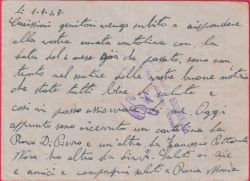 li 1-9-43.
Carissimi genitori vengo subito a rispondere
alla vostra cartolina con la
data del 4 mese già passato, sono con
tento nel sentire delle vostre buone notizie
che state tutti bene di salute e
così vi posso assicurare di me. Oggi
appunto sono ricevuto un cartolina da
Rocco Di Pierro e un'altra da Francesco
Non ho altro da dirvi. Saluti a zii e
e amici e compagni saluti e Rosa Maria